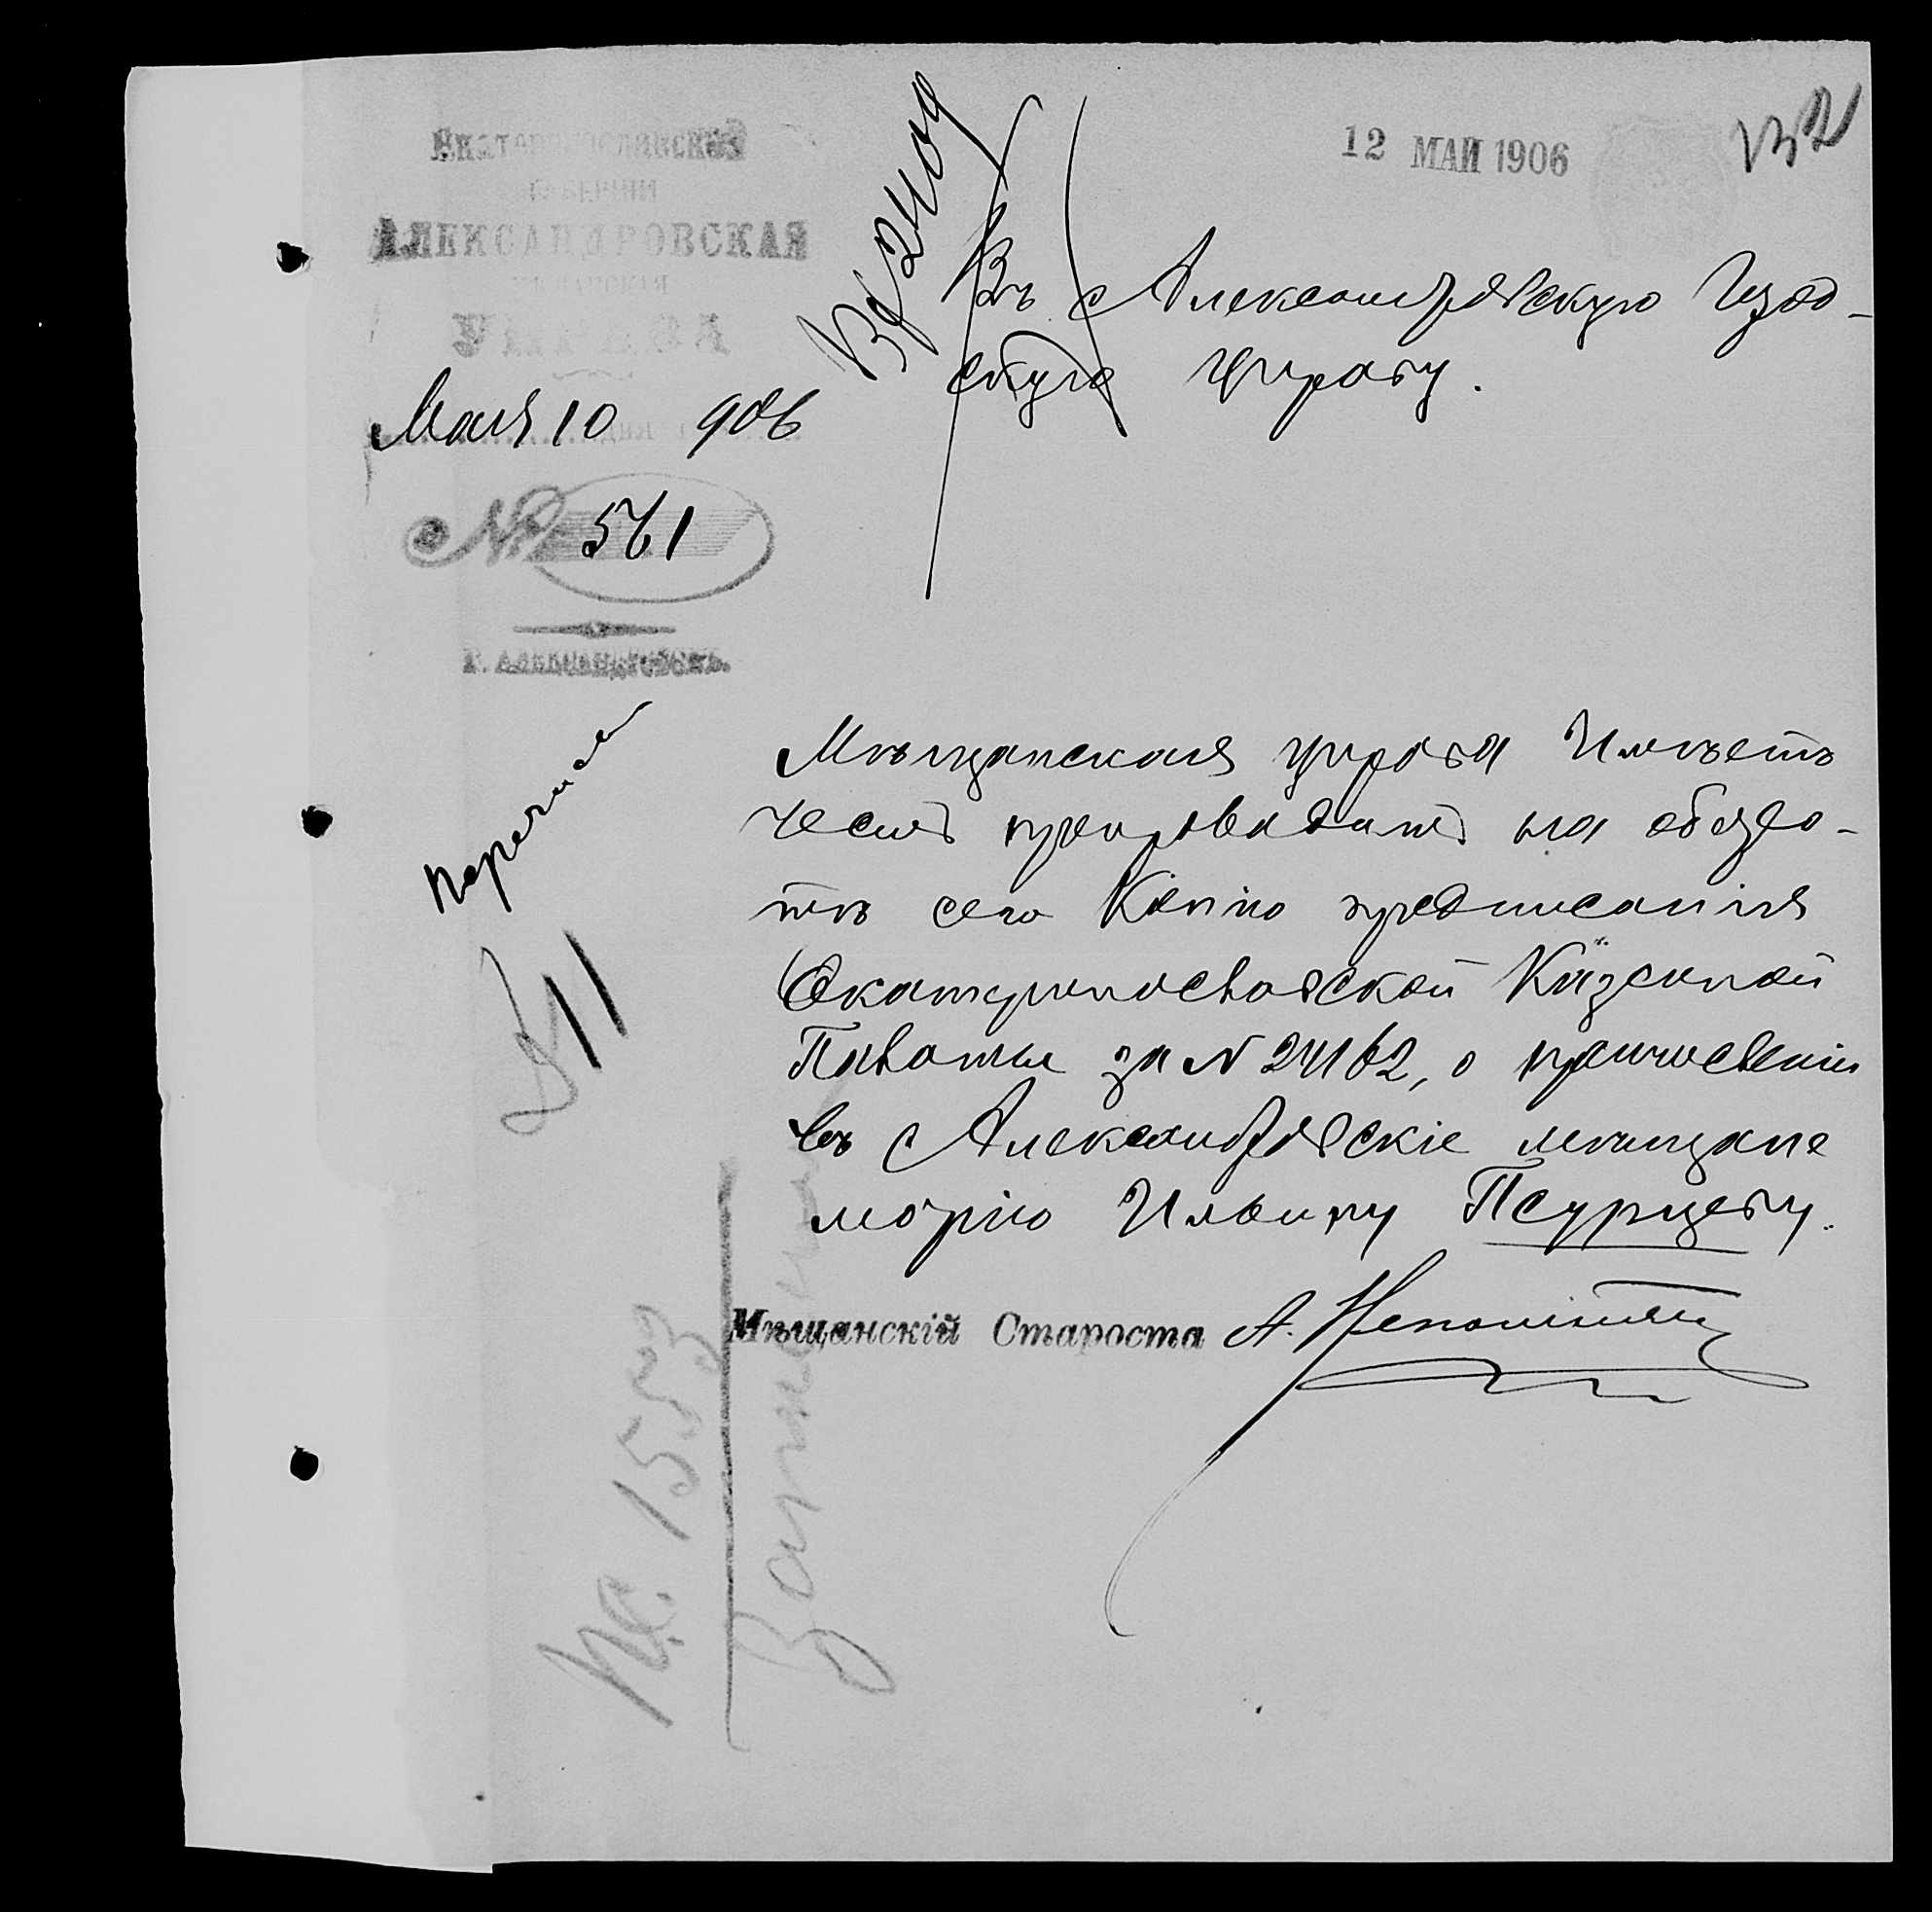 Екатеринославской
ГУБЕРНИИ
АЛЕКСАНДРОВСКАЯ
МѢЩАНСКАЯ
УПРАВА
Мая 10 дня 906
№ 561
Г. АЛЕКСАНДРОВСКЪ.
12 МАЙ 1906
Въ Александровскую Город-
скую Управу.
Мѣщанская управа Имѣетъ
честь препроводить на оборо-
тѣ сего Копію предписанія
Екатеринославской Казенной
Палаты за № 24162, о причисленіи
въ Александровскіе мѣщане
Ильину Псурцеву.
Мѣщанскій Староста А.
1553